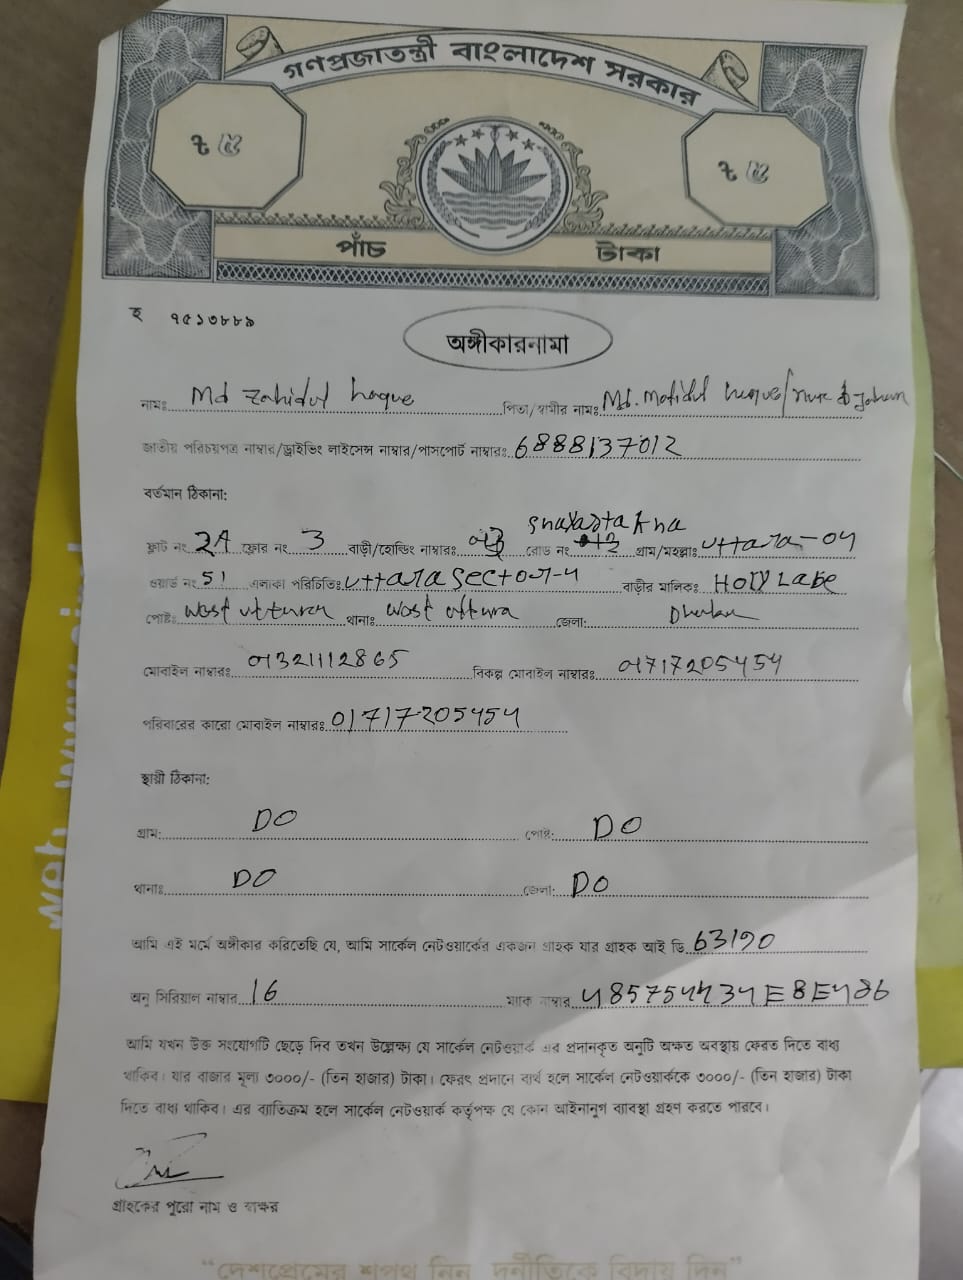 গণপ্রজাতন্ত্রী বাংলাদেশ সরকার
৳ ৫ ৳ ৫
পাঁচ টাকা
হ ৭৫১৩৮৮৯
অঙ্গীকারনামা
নামঃ Md Zahidul haque পিতা/স্বামীর নামঃ Md. Mofidul heque/
জাতীয় পরিচয়পত্র নাম্বার/ড্রাইভিং লাইসেন্স নাম্বার/পাসপোর্ট নাম্বারঃ 6888137012
বর্তমান ঠিকানা:
ফ্লাট নং 2A ফ্লোর নং 3 বাড়ী/হোল্ডিং নাম্বারঃ রোড নং গ্রাম/মহল্লাঃ uttara-04
ওয়ার্ড নং 51 এলাকা পরিচিতিঃ uttara sector-4 বাড়ীর মালিকঃ
পোষ্টঃ West থানাঃ West জেলা:
মোবাইল নাম্বারঃ 01321112865 বিকল্প মোবাইল নাম্বারঃ 01717205454
পরিবারের কারো মোবাইল নাম্বারঃ 01717205454
স্থায়ী ঠিকানা:
গ্রাম: DO পোষ্ট: DO
থানাঃ DO জেলা: DO
আমি এই মর্মে অঙ্গীকার করিতেছি যে, আমি সার্কেল নেটওয়ার্কের একজন গ্রাহক যার গ্রাহক আই ডি 63190
অনু সিরিয়াল নাম্বার 16 ম্যাক নাম্বার
আমি যখন উক্ত সংযোগটি ছেড়ে দিব তখন উল্লেক্ষ্য যে সার্কেল নেটওয়ার্ক এর প্রদানকৃত অনুটি অক্ষত অবস্থায় ফেরত দিতে বাধ্য
থাকিব। যার বাজার মূল্য ৩০০০/- (তিন হাজার) টাকা। ফেরৎ প্রদানে ব্যর্থ হলে সার্কেল নেটওয়ার্ককে ৩০০০/- (তিন হাজার) টাকা
দিতে বাধ্য থাকিব। এর ব্যতিক্রম হলে সার্কেল নেটওয়ার্ক কর্তৃপক্ষ যে কোন আইনানুগ ব্যাবস্থা গ্রহণ করতে পারবে।
গ্রাহকের পুরো নাম ও স্বাক্ষর
"দেশপ্রেমের শপথ নিন, দুর্নীতিকে বিদায় দিন"